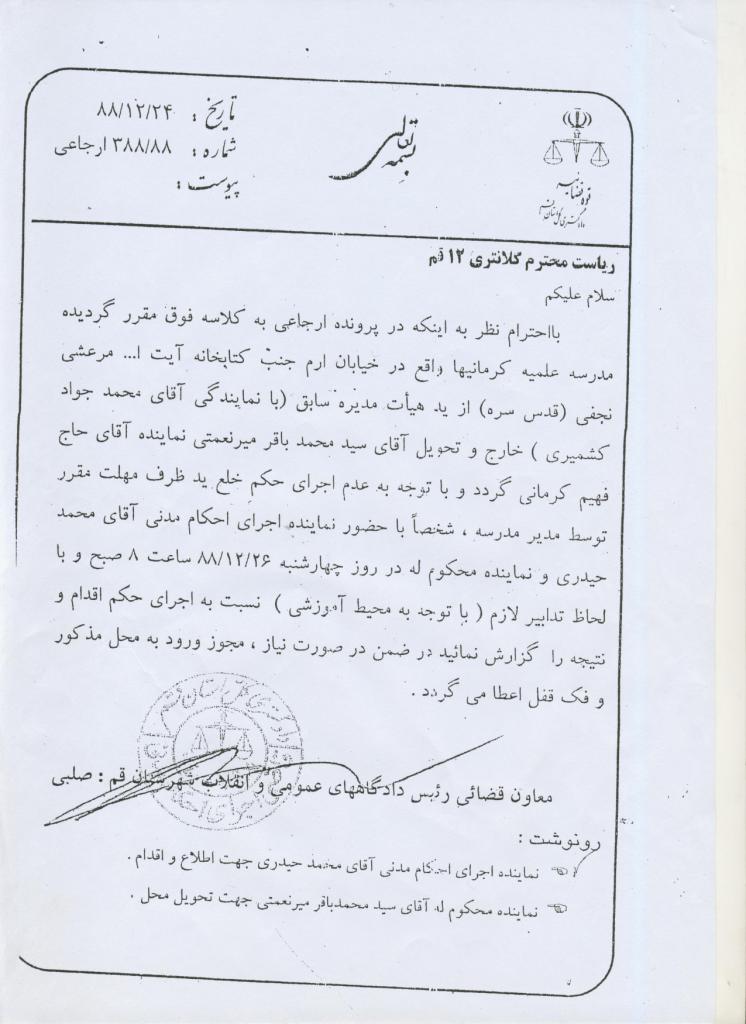 بسمه تعالی
قوه قضائیه
دادگستری کل استان قم
تاریخ : ۸۸/۱۲/۲۴
شماره : ۳۸۸/۸۸ ارجاعی
پیوست :
ریاست محترم کلانتری ۱۲ قم
سلام علیکم
بااحترام نظر به اینکه در پرونده ارجاعی به کلاسه فوق مقرر گردیده
مدرسه علمیه کرمانیها واقع در خیابان ارم جنب کتابخانه آیت ا... مرعشی
نجفی (قدس سره) از ید هیأت مدیره سابق (با نمایندگی آقای محمد جواد
کشمیری ) خارج و تحویل آقای سید محمد باقر میرنعمتی نماینده آقای حاج
فهیم کرمانی گردد و با توجه به عدم اجرای حکم خلع ید ظرف مهلت مقرر
توسط مدیر مدرسه ، شخصاً با حضور نماینده اجرای احکام مدنی آقای محمد
حیدری و نماینده محکوم له در روز چهارشنبه ۸۸/۱۲/۲۶ ساعت ۸ صبح و با
لحاظ تدابیر لازم ( با توجه به محیط آموزشی ) نسبت به اجرای حکم اقدام و
نتیجه را گزارش نمائید در ضمن در صورت نیاز ، مجوز ورود به محل مذکور
و فک قفل اعطا می گردد .
معاون قضائی رئیس دادگاههای عمومی و انقلاب شهرستان قم : صلبی
رونوشت :
نماینده اجرای احکام مدنی آقای محمد حیدری جهت اطلاع و اقدام .
نماینده محکوم له آقای سید محمدباقر میرنعمتی جهت تحویل محل .